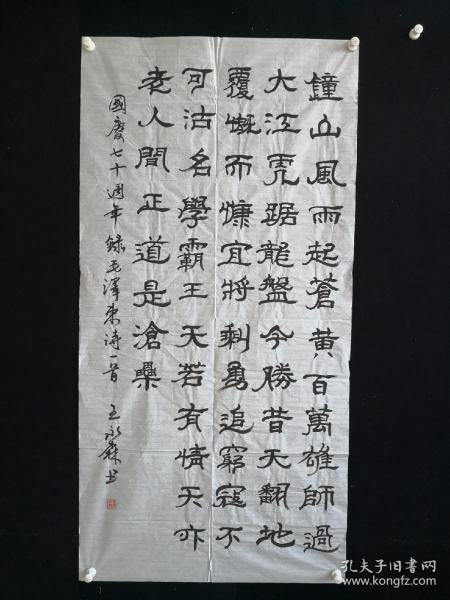 鐘山風雨起蒼黄百萬雄師過
大江虎踞龍盤今勝昔天翻地
覆慨而慷宜將剩勇追窮寇不
可沽名學霸王天若有情天亦
老人間正道是滄桑
國慶七十週年錄毛澤東詩一首 王永森书
孔夫子旧书网
www.kongfz.com